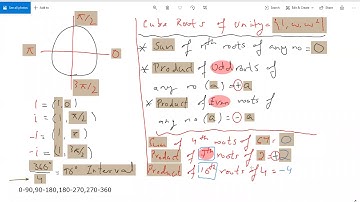 π/2
π
0
3π/2
1 = (1, 0)
i = (1, π/2)
-1 = (1, π)
-i = (1, 3π/2)
360°/4 = 90° Interval
0-90,90-180,180-270,270-360
Cube Roots of Unity = {1, w, w²}
* Sum of nth roots of any no = 0
* Product of Odd roots of
any no (a) = + a
* Product of Even roots of
any no (a) = - a
Sum of 4th roots of 64 = 0
Product of roots of 2 = + 2
Product of 10th roots of 4 = -4